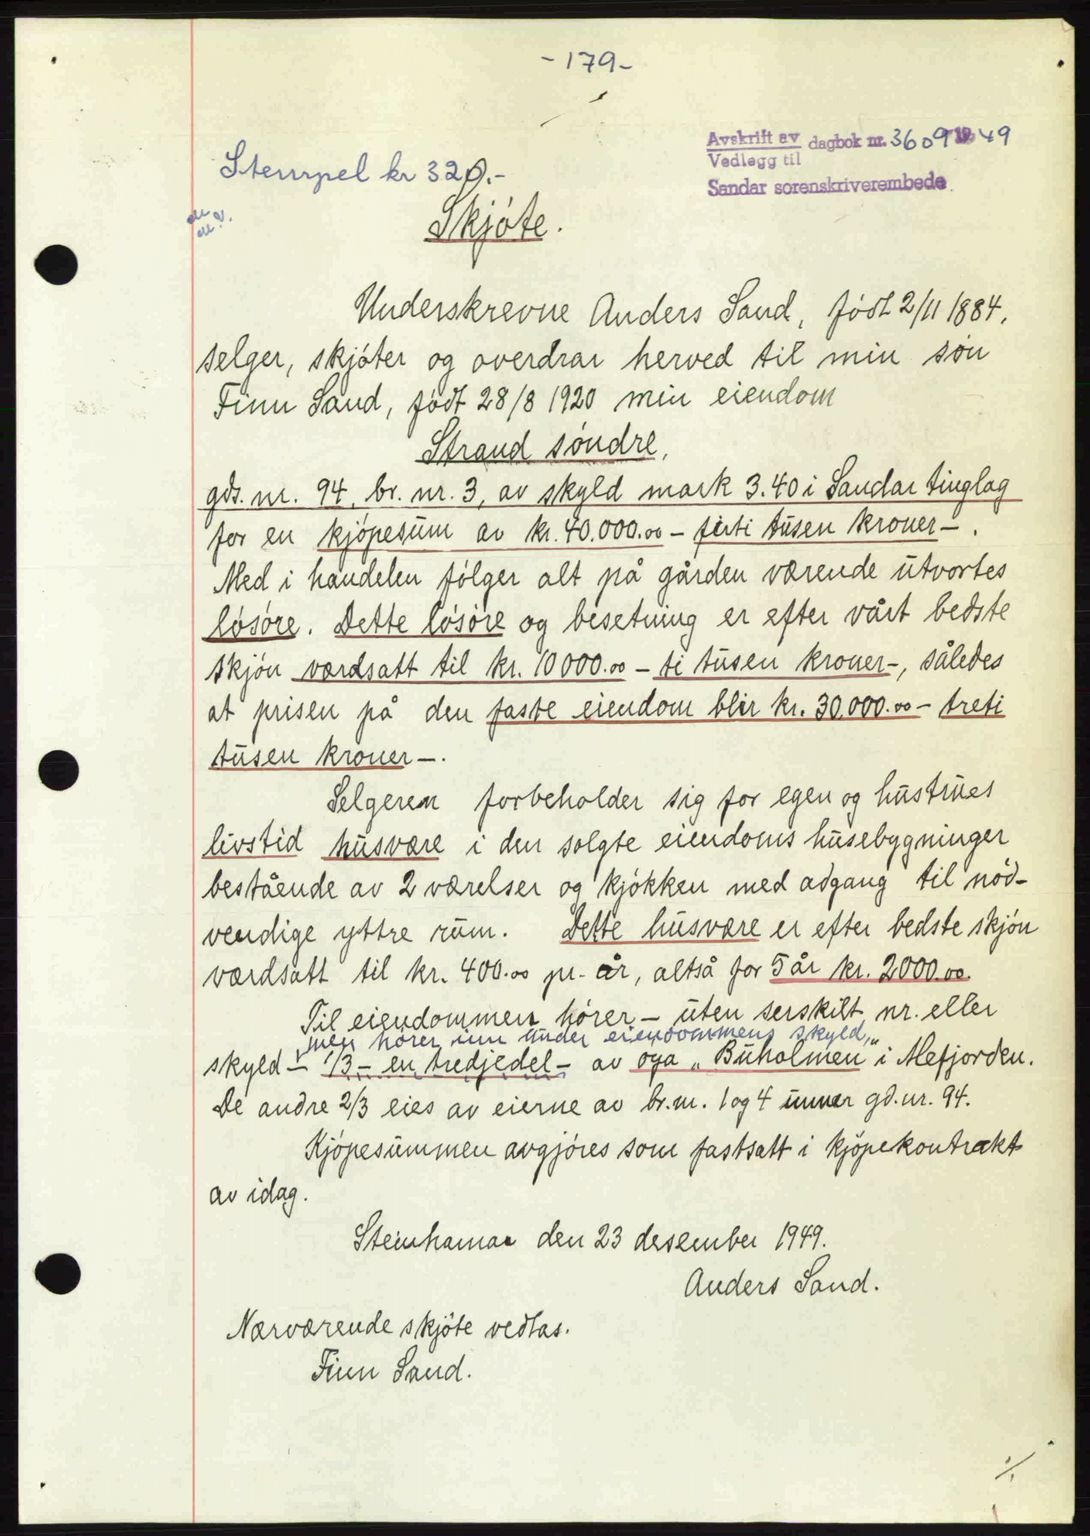 - 179 -
Avskrift av
Vedlegg til
dagbok nr. 3609 1949
Sandar sorenskriverembede.
Stempel kr 320.-
Skjöte.
Underskrevne Anders Sand, födt 2/11 1884,
selger, skjöter og overdrar herved til min sön
Finn Sand, födt 28/8 1920 min eiendom
Strand söndre,
gds. nr. 94, br. nr. 3, av skyld mark 3.40 i Sandar tinglag
for en kjöpesum av kr. 40.000.00 - firti tusen kroner -.
Med i handelen fölger alt på gården værende utvortes
lösöre. Dette lösöre og besetning er efter vårt bedste
skjön værdsatt til kr. 10000.00 - ti tusen kroner -, således
at prisen på den faste eiendom blir kr. 30.000.00 - treti
tusen kroner -.
Selgeren forbeholder sig for egen og hustrues
livstid husvære i den solgte eiendoms husebygninger
bestående av 2 værelser og kjökken med adgang til nöd-
vendige yttre rum. Dette husvære er efter bedste skjön
værdsatt til kr. 400.00 pr. år, altså for 5 år kr. 2000.00.
Til eiendommen hörer - uten serskilt nr. eller
men hörer inn under eiendommens skyld,
skyld - 1/3 - en tredjedel - av öya „Buholmen" i Mefjorden.
De andre 2/3 eies av eierne av br. nr. 1 og 4 unner gd. nr. 94.
Kjöpesummen avgjöres som fastsatt i kjöpekontrakt
av idag.
Steinhamar den 23 desember 1949.
Anders Sand.
Nærværende skjöte vedtas.
Finn Sand.